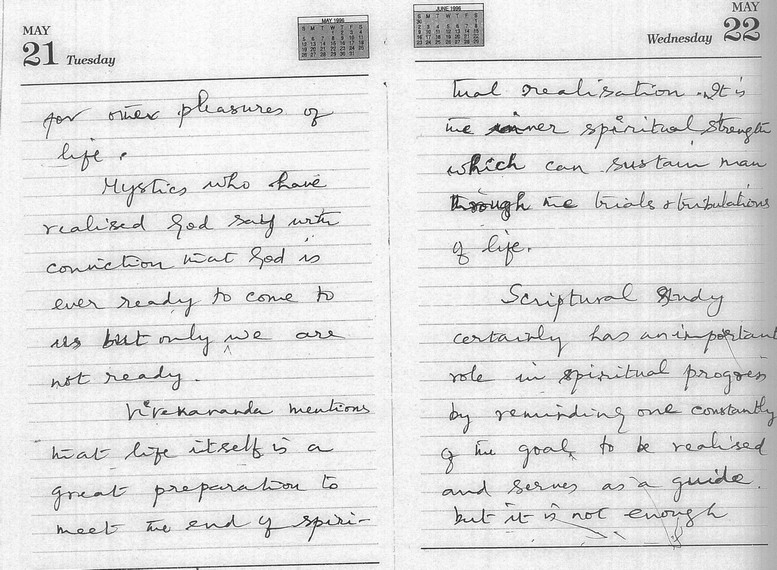 MAY
21 Tuesday
MAY 1996
for other pleasures of
life.
Mystics who have
realised God say with
conviction that God is
ever ready to come to
us but only we are
not ready.
Vivekananda mentions
that life itself is a
great preparation to
meet the end of spiri-
JUNE 1996
MAY
Wednesday 22
tual realisation. It is
the inner spiritual strength
which can sustain man
through the trials & tribulations
of life.
Scriptural Study
certainly has an important
role in spiritual progress
by reminding one constantly
of the goal, to be realised
and serves as a guide.
but it is not enough
if